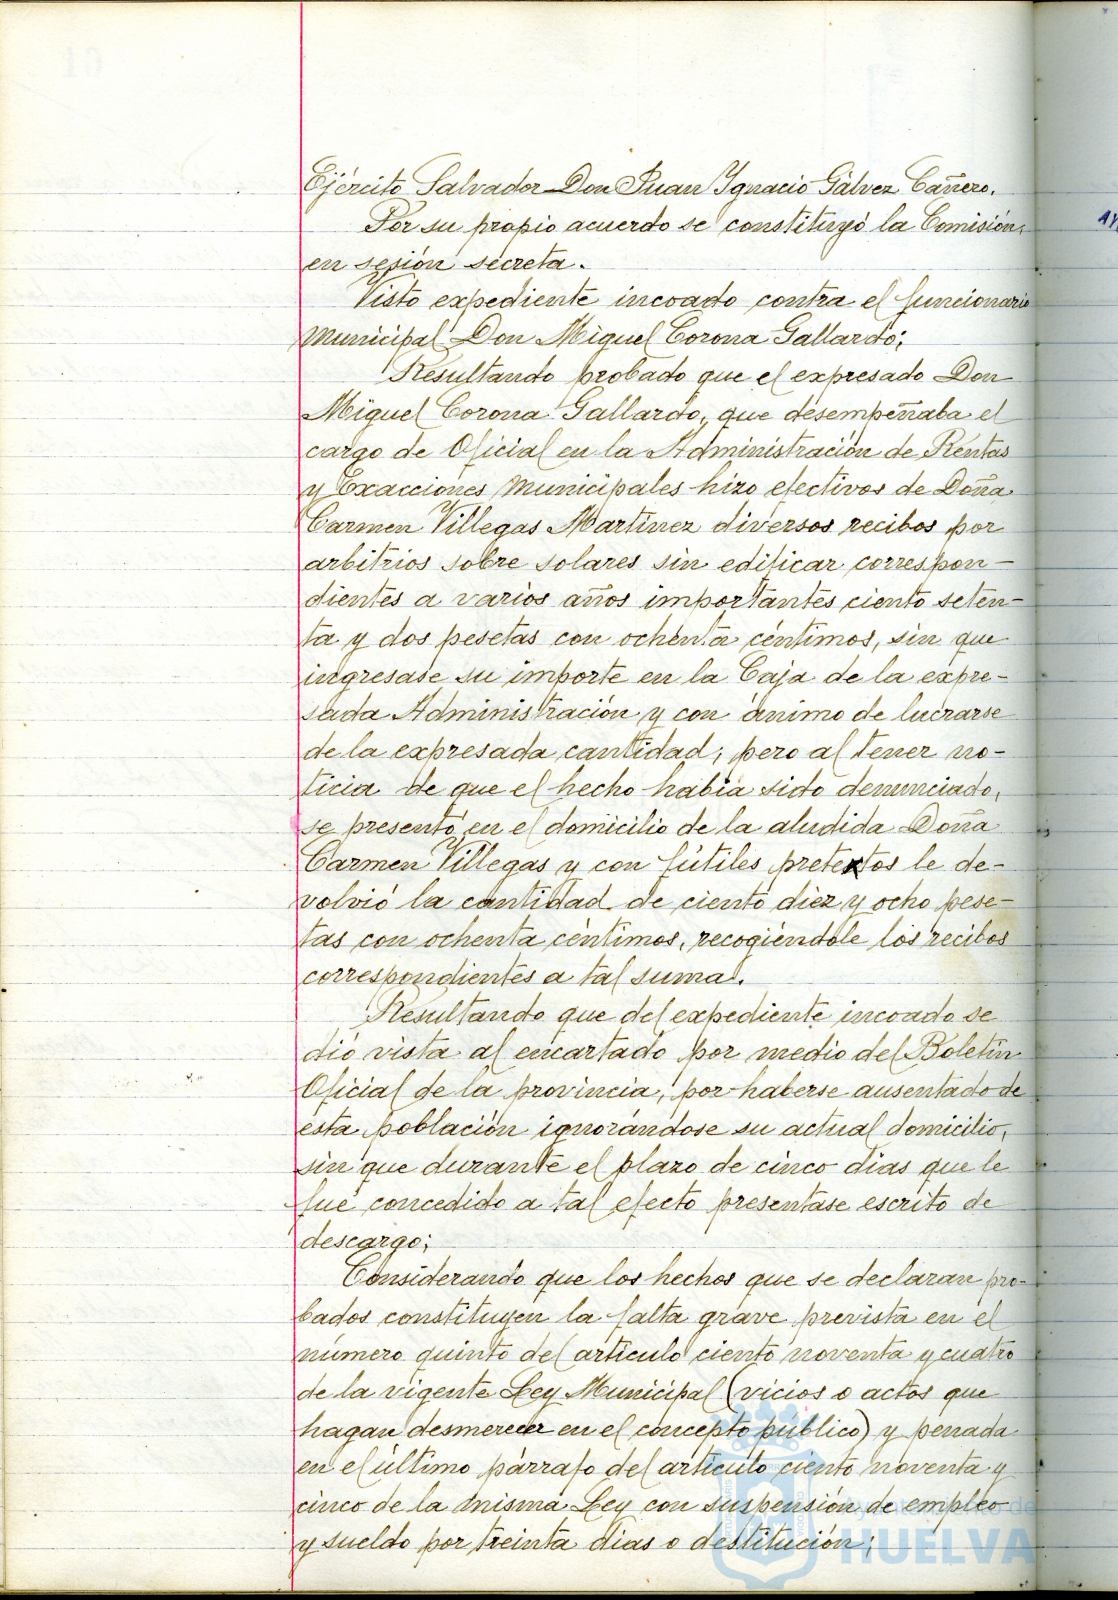 Ejército Salvador Don Juan Ignacio Gálvez Cañero.
Por su propio acuerdo se constituyó la Comisión,
en sesión secreta.
Visto expediente incoado contra el funcionario
Municipal Don Miguel Corona Gallardo;
Resultando probado que el expresado Don
Miguel Corona Gallardo, que desempeñaba el
cargo de Oficial en la Administración de Rentas
y Exacciones Municipales hizo efectivos de Doña
Carmen Villegas Martínez diversos recibos por
arbitrios sobre solares sin edificar correspon-
dientes a varios años importantes ciento seten-
ta y dos pesetas con ochenta céntimos, sin que
ingresase su importe en la Caja de la expre-
sada Administración y con ánimo de lucrarse
de la expresada cantidad; pero al tener no-
ticia de que el hecho había sido denunciado,
se presentó en el domicilio de la aludida Doña
Carmen Villegas y con fútiles pretextos le de-
volvió la cantidad de ciento diez y ocho pese-
tas con ochenta céntimos, recogiéndole los recibos
correspondientes a tal suma.
Resultando que del expediente incoado se
dió vista al encartado por medio del Boletín
Oficial de la provincia, por haberse ausentado de
esta población ignorándose su actual domicilio,
sin que durante el plazo de cinco dias que le
fué concedido a tal efecto presentase escrito de
descargo;
Considerando que los hechos que se declaran pro-
bados constituyen la falta grave prevista en el
número quinto del artículo ciento noventa y cuatro
de la vigente Ley Municipal (vicios o actos que
hagan desmerecer en el concepto público) y penada
en el último párrafo del artículo ciento noventa y
cinco de la misma Ley con suspensión de empleo
y sueldo por treinta dias o destitución;
Ayuntamiento de
HUELVA